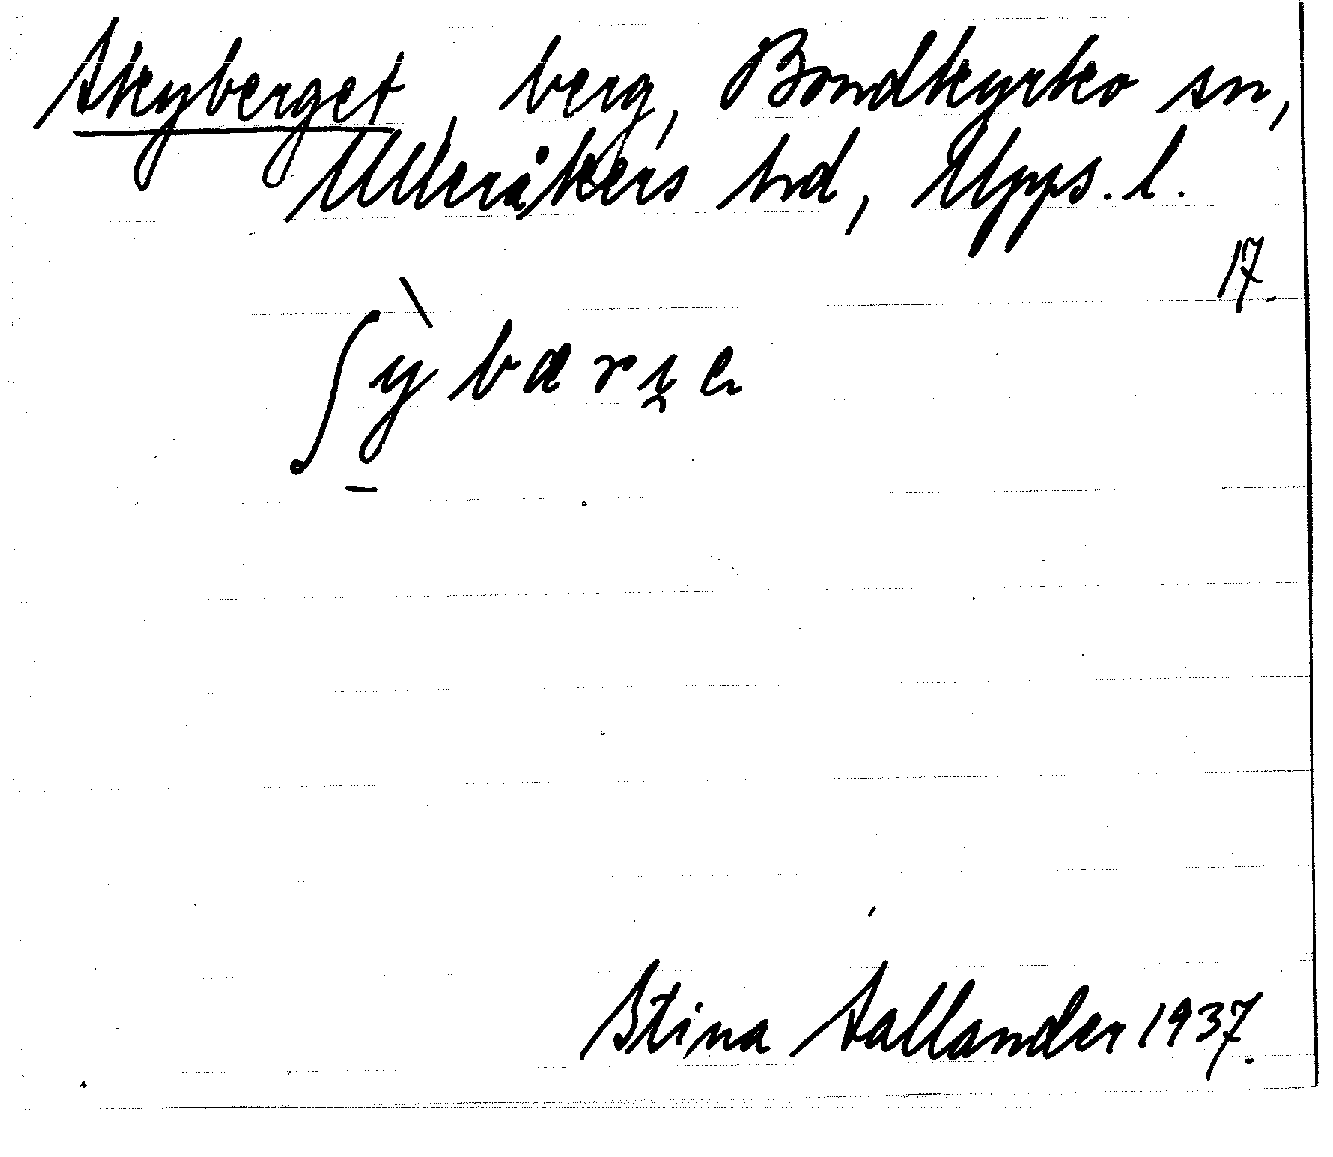 Skyberget, berg, Bondkyrko sn,
Ulleråkers hd, Upps. l.
17.
ʃỳ̠bærı̨e
Stina Sallander 1937.